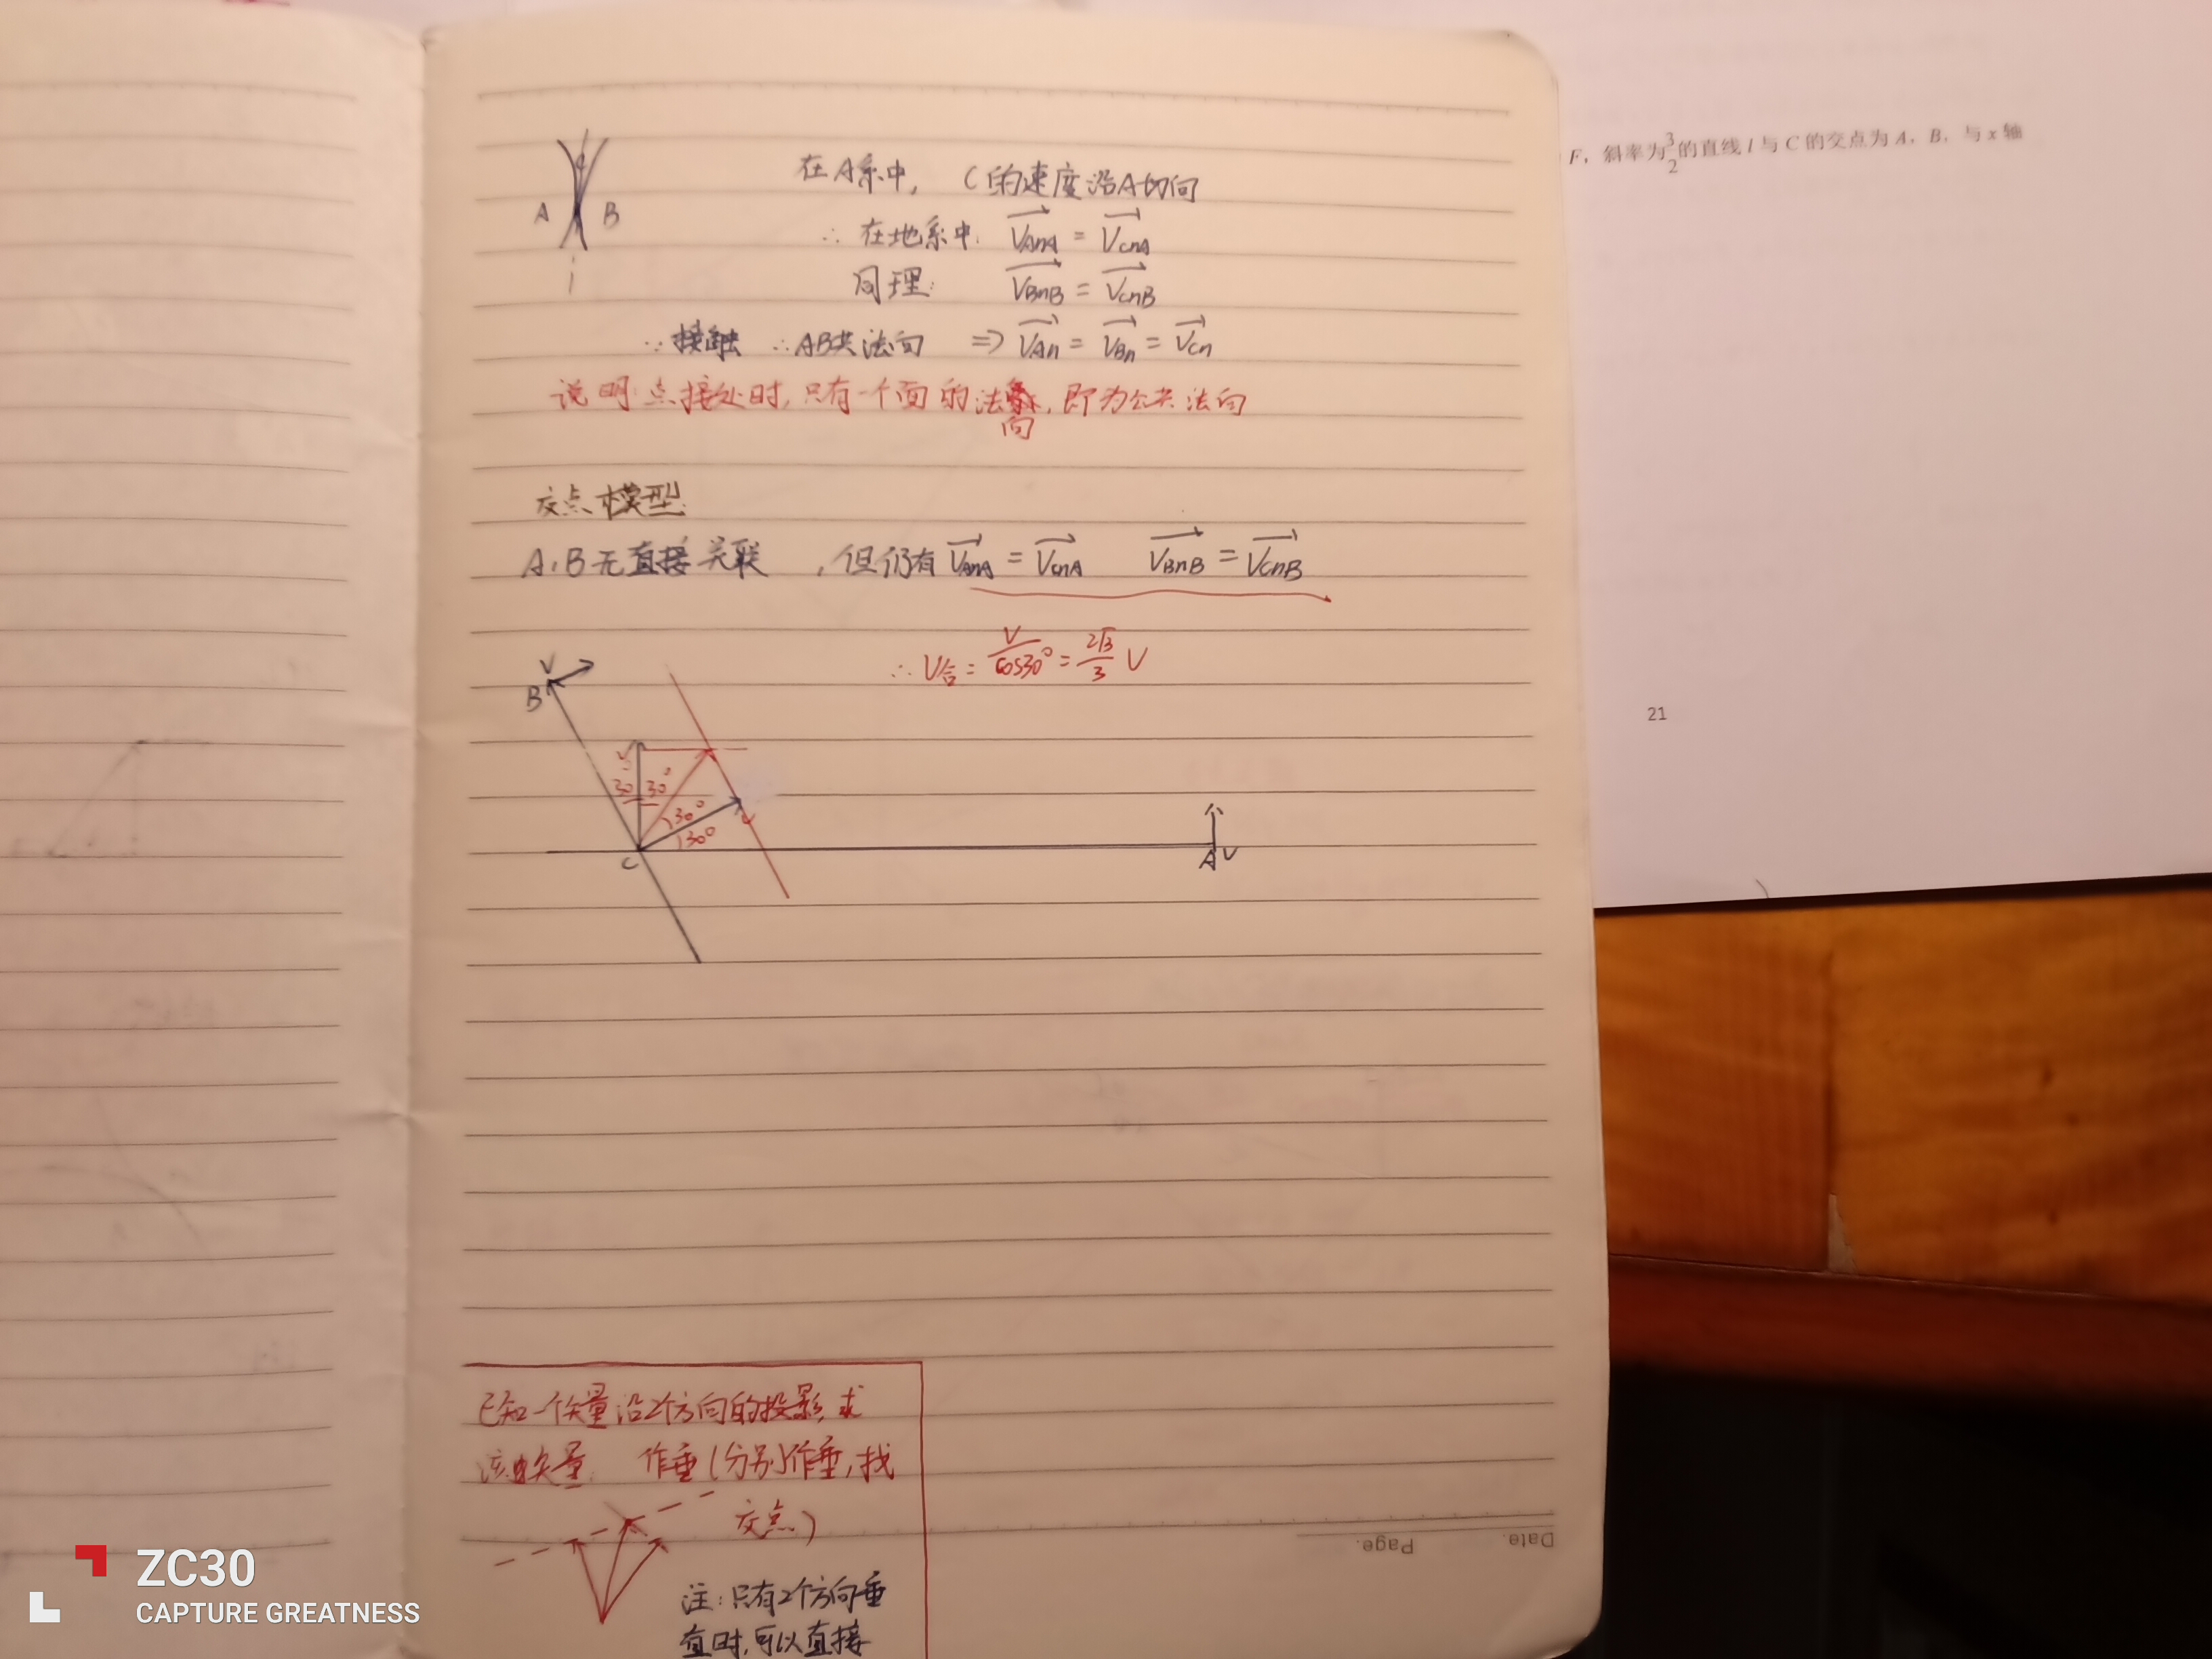 在A系中, C的速度沿A切向
A B
∴ 在地系中: V_AnA = V_CnA
同理: V_BnB = V_CnB
∵ 接触 ∴ AB共法向 ⇒ V_An = V_Bn = V_Cn
说明: 点接处时, 只有一个面的法向, 即为公共法向
交点模型:
A, B 无直接关联, 但仍有 V_AnA = V_CnA V_BnB = V_CnB
∴ V合 = V/cos30° = 2√3/3 V
V
B
V
30° 30°
30° V
30°
C A V
已知一个矢量沿2个方向的投影, 求
该矢量: 作垂(分别作垂, 找
交点)
注: 只有2个方向垂
直时, 可以直接
F, 斜率为3/2的直线 l 与 C 的交点为 A, B, 与 x 轴
21
Date. Page.
ZC30
CAPTURE GREATNESS